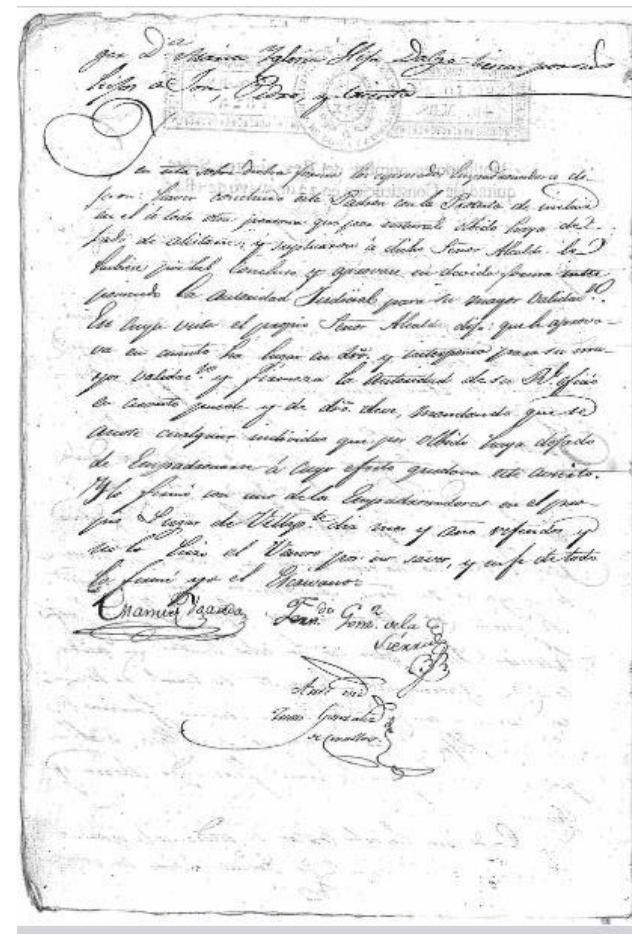 que D.ª Maria Iglesia Hija Dalgo tienen por sus
hijos a Jose, Pedro, y
en esta sobre dicha forma los expresados Empadronadores di-
jeron: haver concluido este Padron con la Protesta de incluir
en él á toda otra persona que por natural olbido haya de-
jado de alistarse; y suplicaron á dicho Señor Alcalde le
hubiese por tal Concluso y aprovase en devida forma inter
poniendo la autoridad Judicial para su mayor validac.ⁿ
En cuya vista el propio Señor Alcalde dijo: que le aprova-
va en cuanto ha lugar en dro. y interponia para su ma-
yor validac.ⁿ y firmeza la autoridad de su R.l oficio
en cuanto puede y de dro. deve, mandando que se
anote cualquier individuo que por olbido haya dejado
de Empadronarse á cuyo efecto quedava este avierto.
Y lo firmó con uno de los Empadronadores en el pro-
pio Lugar de dia mes y año referidos, y
no lo hizo el por no saver, y en fe de todo
lo firmé yo el Escrivano:
Fern.do Gom.z de la
Sierra
Ante mi
Gonzalez
de